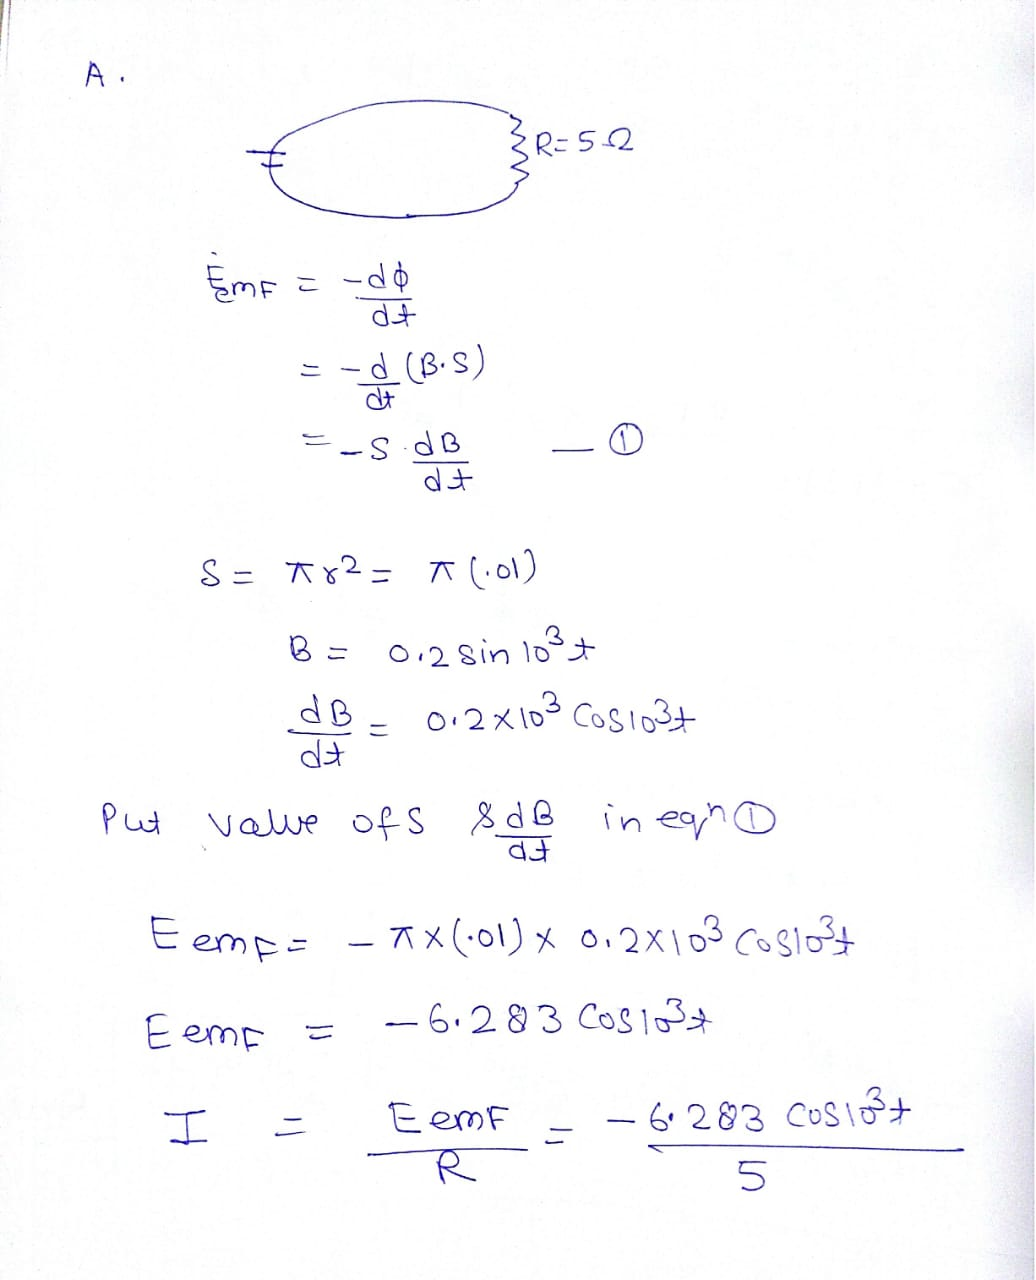 A.
R=5Ω
EemF = -dφ/dt
= -d/dt (B.S)
= -S.dB/dt — ①
S = πr2 = π(.01)
B = 0.2 sin 10³t
dB/dt = 0.2×10³ Cos10³t
Put value of S & dB/dt in eqn ①
EemF = - π×(.01)× 0.2×10³ Cos10³t
EemF = -6.283 Cos10³t
I = EemF/R = -6.283 Cos10³t/5